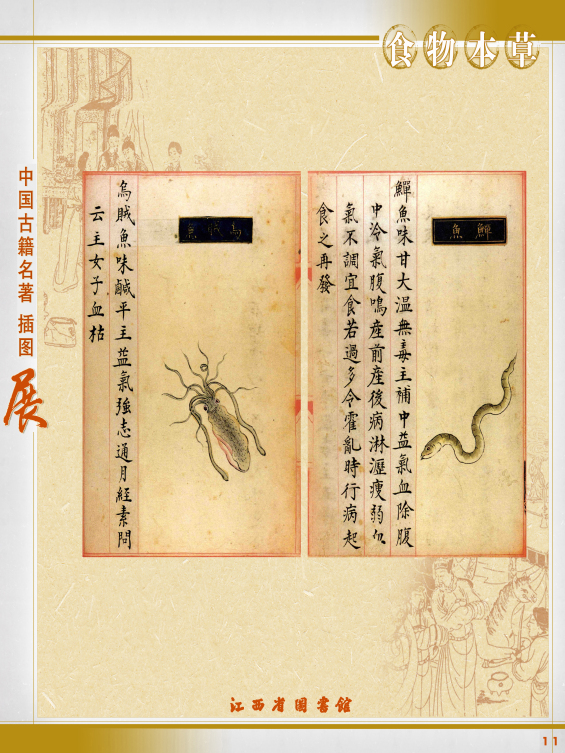 食物本草
中国古籍名著插图展
鱓魚
鱓魚味甘大温無毒主補中益氣血除腹
中冷氣腹鳴産前産後病淋瀝瘦弱血
氣不調宜食若過多令霍亂時行病起
食之再發
烏賊魚
烏賊魚味鹹平主益氣強志通月經素問
云主女子血枯
江西省图書館
11